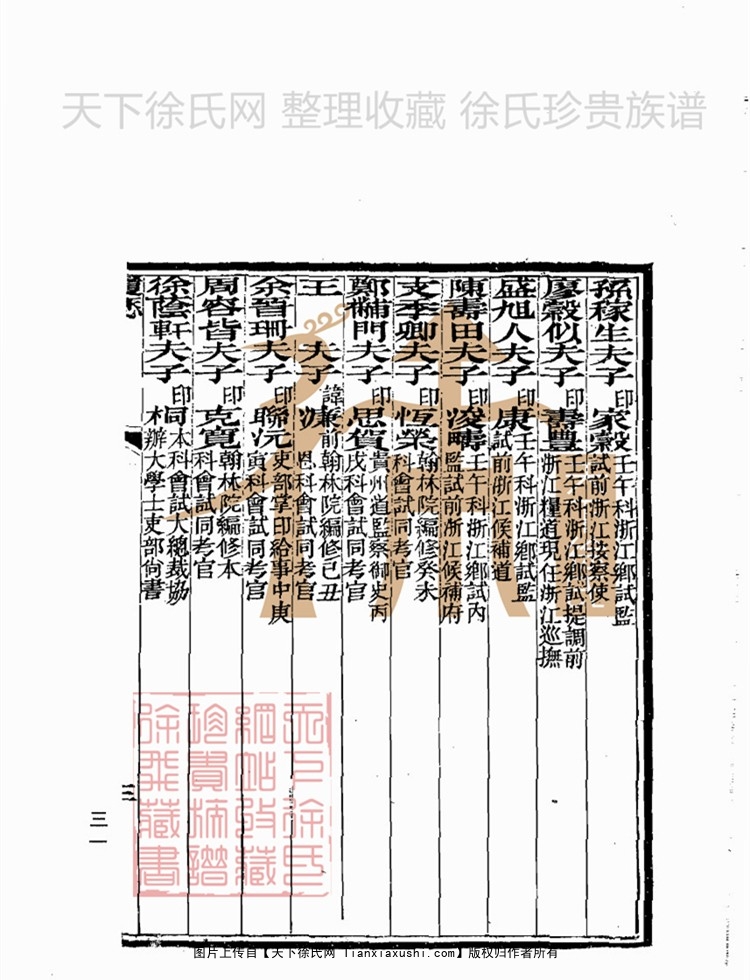 天下徐氏网 整理收藏 徐氏珍贵族谱
孫稼生夫子印家穀 壬午科浙江鄉試監試前浙江按察使
廖穀似夫子印壽豐 壬午科浙江鄉試提調前浙江糧道現任浙江巡撫
盛旭人夫子印康 壬午科浙江鄉試監試前浙江候補道
陳壽田夫子印浚疇 壬午科浙江鄉試內監試前浙江候補府
支季卿夫子印恆榮 翰林院編修癸未科會試同考官
鄭黼門夫子印思賀 貴州道監察御史丙戌科會試同考官
王 夫子諱濂 前翰林院編修己丑恩科會試同考官
余晉珊夫子印聯沅 吏部掌印給事中庚寅科會試同考官
周容皆夫子印克寬 翰林院編修本科會試同考官
徐蔭軒夫子印桐 本科會試大總裁協辦大學士吏部尙書
履歷
三
三一
天下徐氏
網站收藏
珍貴族譜
徐飛藏書
图片上传自【天下徐氏网 tianxiaxushi.com】版权归作者所有